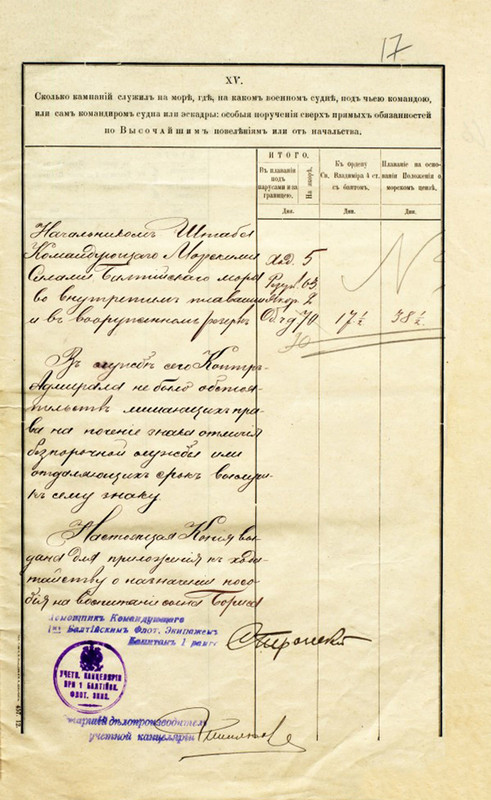 17
XV.
Сколько кампаній служилъ на морѣ, гдѣ, на какомъ военномъ суднѣ, подъ чьею командою,
или самъ командиромъ судна или эскадры: особыя порученія сверхъ прямыхъ обязанностей
по Высочайшимъ повелѣніямъ или отъ начальства.
ИТОГО.
Въ плаваніи подъ парусами и за границею.
На якорѣ.
Къ ордену Св. Владиміра 4 ст. съ бантомъ.
Плаваніе на основаніи Положенія о морскомъ цензѣ.
Дни.
Дни.
Дни.
Начальникомъ Штаба
Командующаго Морскими
Силами Балтійскаго моря Ход. 5
во внутреннемъ плаваніи 63
Якор. 2
и въ вооруженномъ резервѣ 70 17½ 38½
70
Въ службѣ сего Контръ-
Адмирала не было обстоя-
тельствъ лишающихъ пра-
ва на полученіе знака отличія
безпорочной службы или
отдаляющихъ срокъ выслуги
къ сему знаку.
Настоящая Копія вы-
дана для приложенія къ хода-
тайству о назначеніи посо-
бія на воспитаніе сына Бориса
Помощникъ Командующаго
1мъ Балтійскимъ Флот. Экипажемъ
Капитанъ 1 ранга
УЧЕТН. КАНЦЕЛЯРІИ
ПРИ 1 БАЛТІЙСК.
ФЛОТ. ЭКИП.
дѣлопроизводитель
учетной канцеляріи